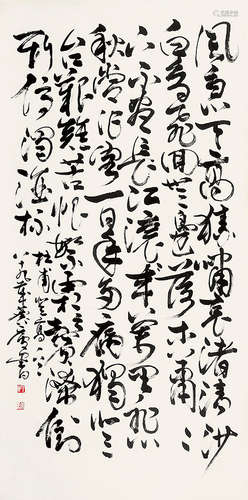 風急天高猿嘯哀渚清沙
白鳥飛回無邊落木蕭〻
下不盡長江滾來萬里悲
秋常作客百年多病獨登
台艱難苦恨繁霜鬢潦倒
新停濁酒杯
杜甫登高